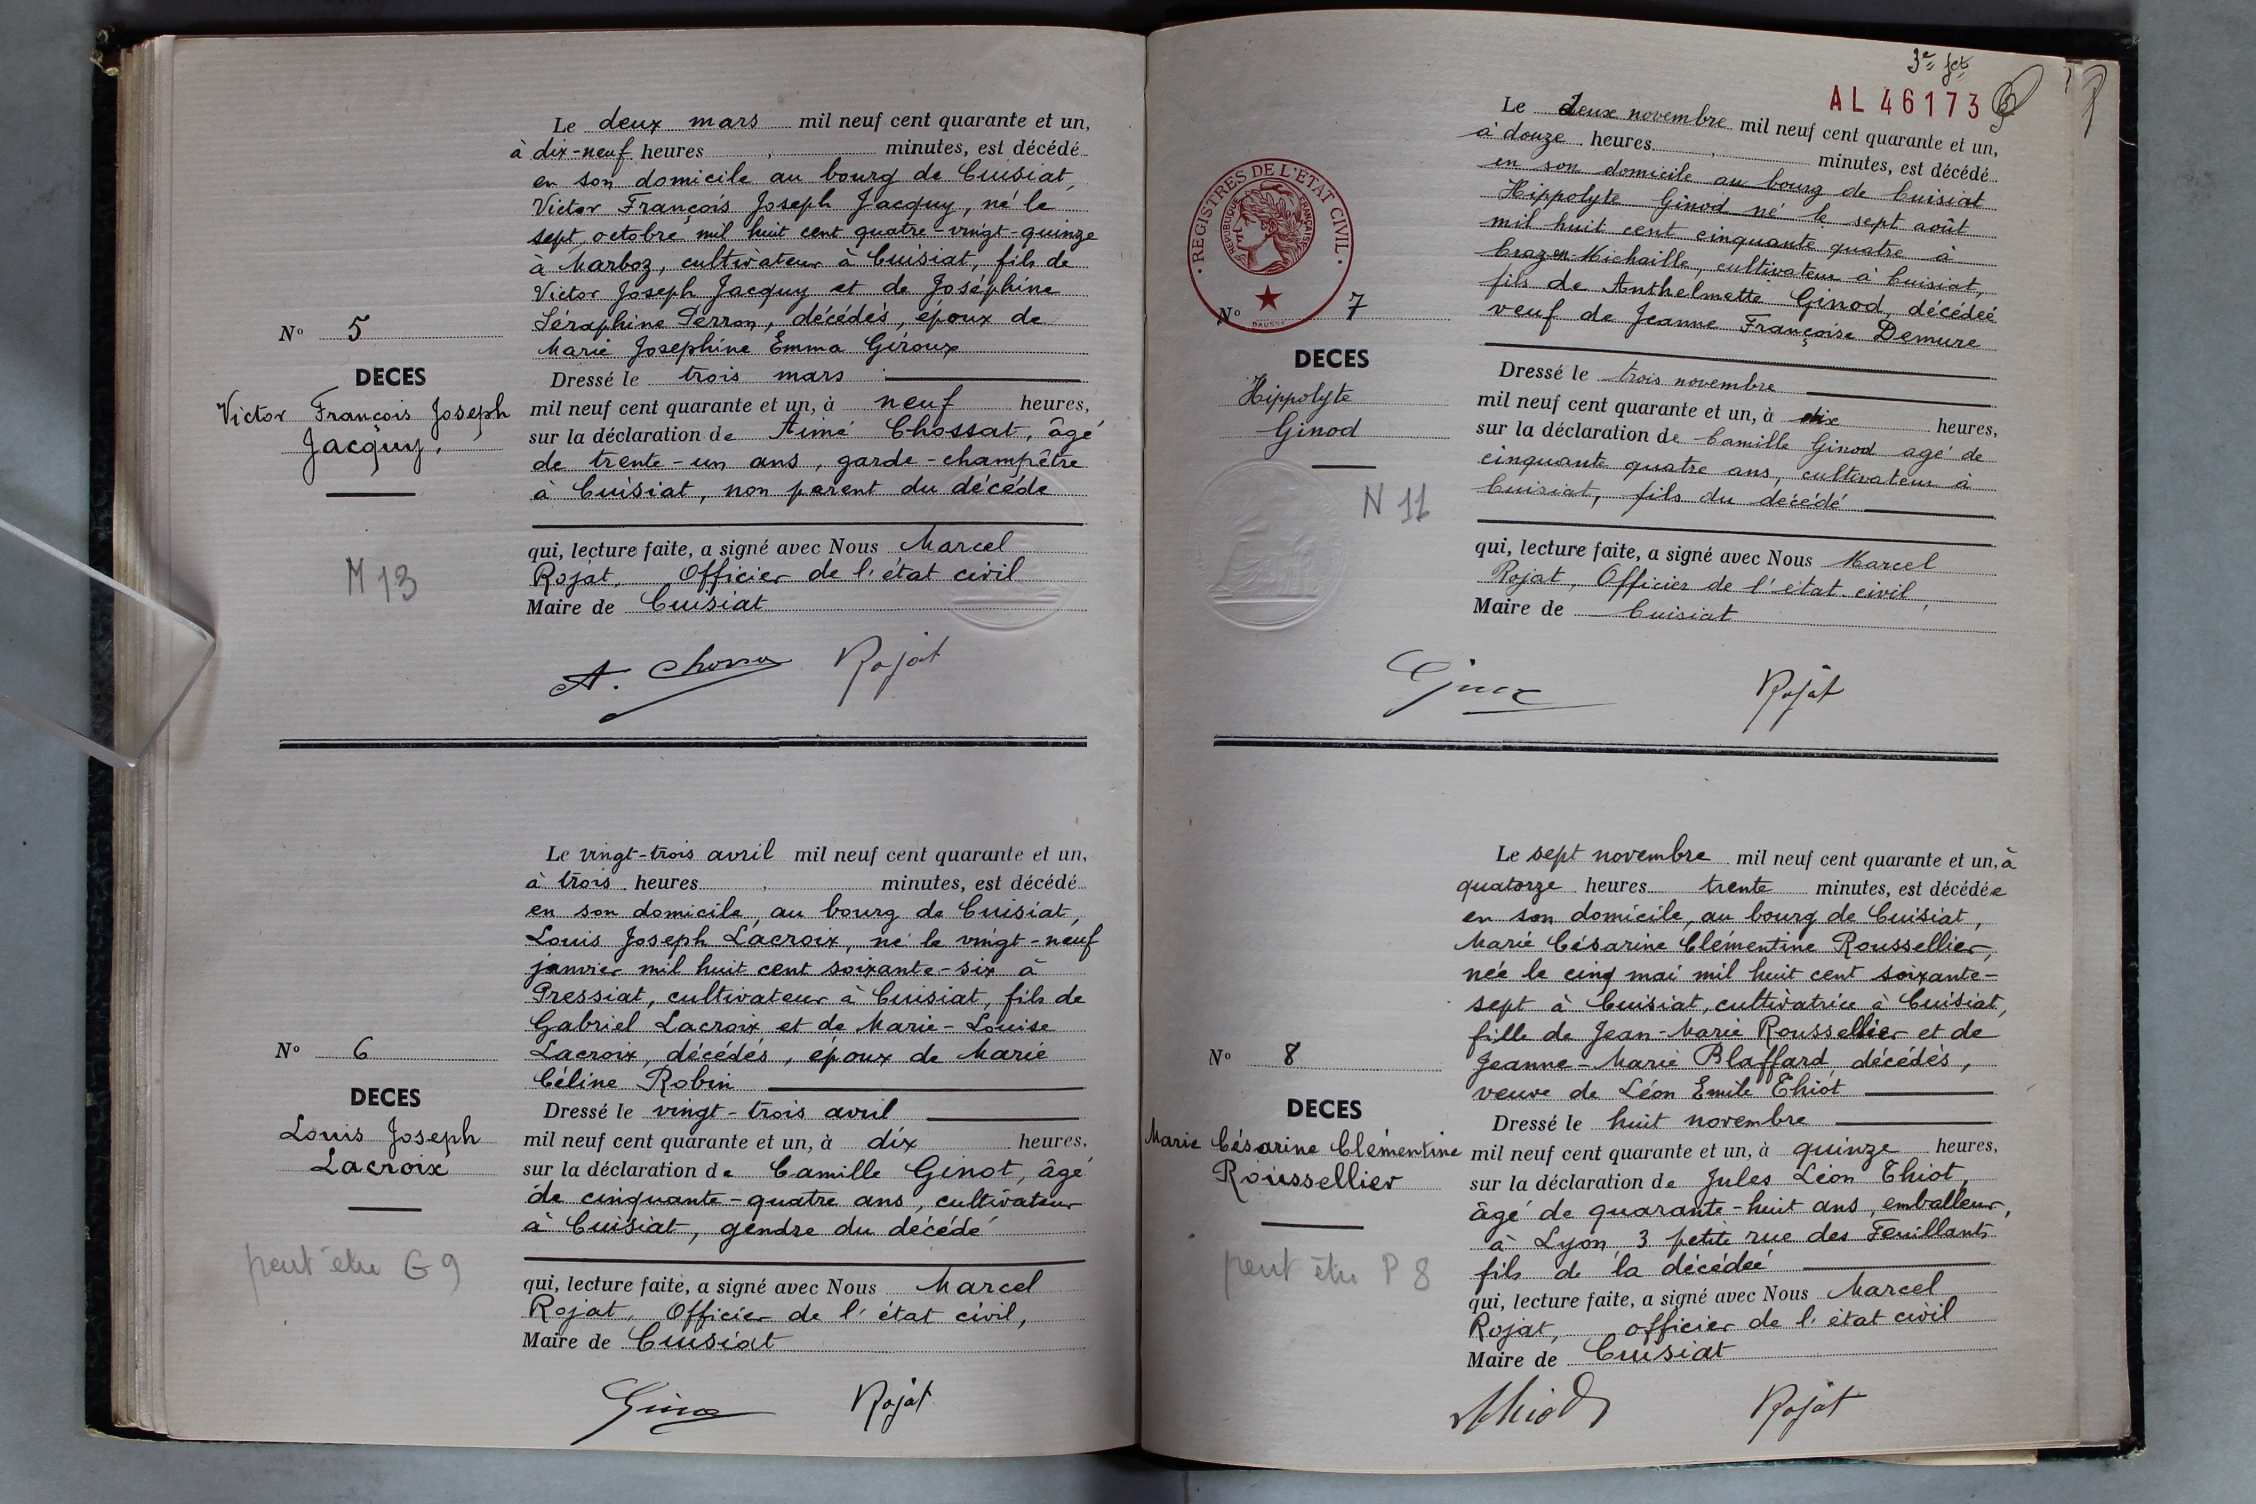 Le deux mars mil neuf cent quarante et un,
à dix-neuf heures , minutes, est décédé
en son domicile au bourg de Cuisiat,
Victor François Joseph Jacquy, né le
sept octobre mil huit cent quatre-vingt-quinze
à Marboz, cultivateur à Cuisiat, fils de
Victor Joseph Jacquy et de Joséphine
Séraphine Perron, décédés, époux de
Marie Josephine Emma Giroux
N° 5
DECES
Victor François Joseph
Jacquy.
M 13
Dressé le trois mars
mil neuf cent quarante et un, à neuf heures,
sur la déclaration de Aimé Chossat, âgé
de trente-un ans, garde-champêtre
à Cuisiat, non parent du décédé
qui, lecture faite, a signé avec Nous Marcel
Rojat, Officier de l'état civil
Maire de Cuisiat
A. Chossa Rojat
Le vingt-trois avril mil neuf cent quarante et un,
à trois heures , minutes, est décédé
en son domicile, au bourg de Cuisiat,
Louis Joseph Lacroix, né le vingt-neuf
janvier mil huit cent soixante-six à
Pressiat, cultivateur à Cuisiat, fils de
Gabriel Lacroix et de Marie-Louise
Lacroix, décédés, époux de Marie
Céline Robin
N° 6
DECES
Louis Joseph
Lacroix
peut être G 9
Dressé le vingt-trois avril
mil neuf cent quarante et un, à dix heures,
sur la déclaration de Camille Ginot, âgé
de cinquante-quatre ans, cultivateur
à Cuisiat, gendre du décédé
qui, lecture faite, a signé avec Nous Marcel
Rojat, Officier de l'état civil,
Maire de Cuisiat
Rojat
3e fet
AL 46173
REGISTRES DE L'ETAT CIVIL
REPUBLIQUE FRANÇAISE
Le deux novembre mil neuf cent quarante et un,
à douze heures , minutes, est décédé
en son domicile au bourg de Cuisiat
Hippolyte Ginod né le sept août
mil huit cent cinquante quatre à
Craz en Michaille, cultivateur à Cuisiat,
fils de Anthelmette Ginod, décédée
veuf de Jeanne Françoise Demure
N° 7
DECES
Hippolyte
Ginod
N 11
Dressé le trois novembre
mil neuf cent quarante et un, à dix heures,
sur la déclaration de Camille Ginod agé de
cinquante quatre ans, cultivateur à
Cuisiat, fils du décédé
qui, lecture faite, a signé avec Nous Marcel
Rojat, Officier de l'état civil,
Maire de Cuisiat
Rojat
Le sept novembre mil neuf cent quarante et un, à
quatorze heures trente minutes, est décédée
en son domicile, au bourg de Cuisiat,
Marie Césarine Clémentine Roussellier,
née le cinq mai mil huit cent soixante-
sept à Cuisiat, cultivatrice à Cuisiat,
fille de Jean-Marie Roussellier et de
Jeanne-Marie Blaffard décédés,
veuve de Léon Emile Thiot
N° 8
DECES
Marie Césarine Clémentine
Roussellier
peut être P 8
Dressé le huit novembre
mil neuf cent quarante et un, à quinze heures,
sur la déclaration de Jules Léon Thiot,
âgé de quarante-huit ans, emballeur,
à Lyon 3 petite rue des Feuillants
fils de la décédée
qui, lecture faite, a signé avec Nous Marcel
Rojat, officier de l'état civil
Maire de Cuisiat
Rojat